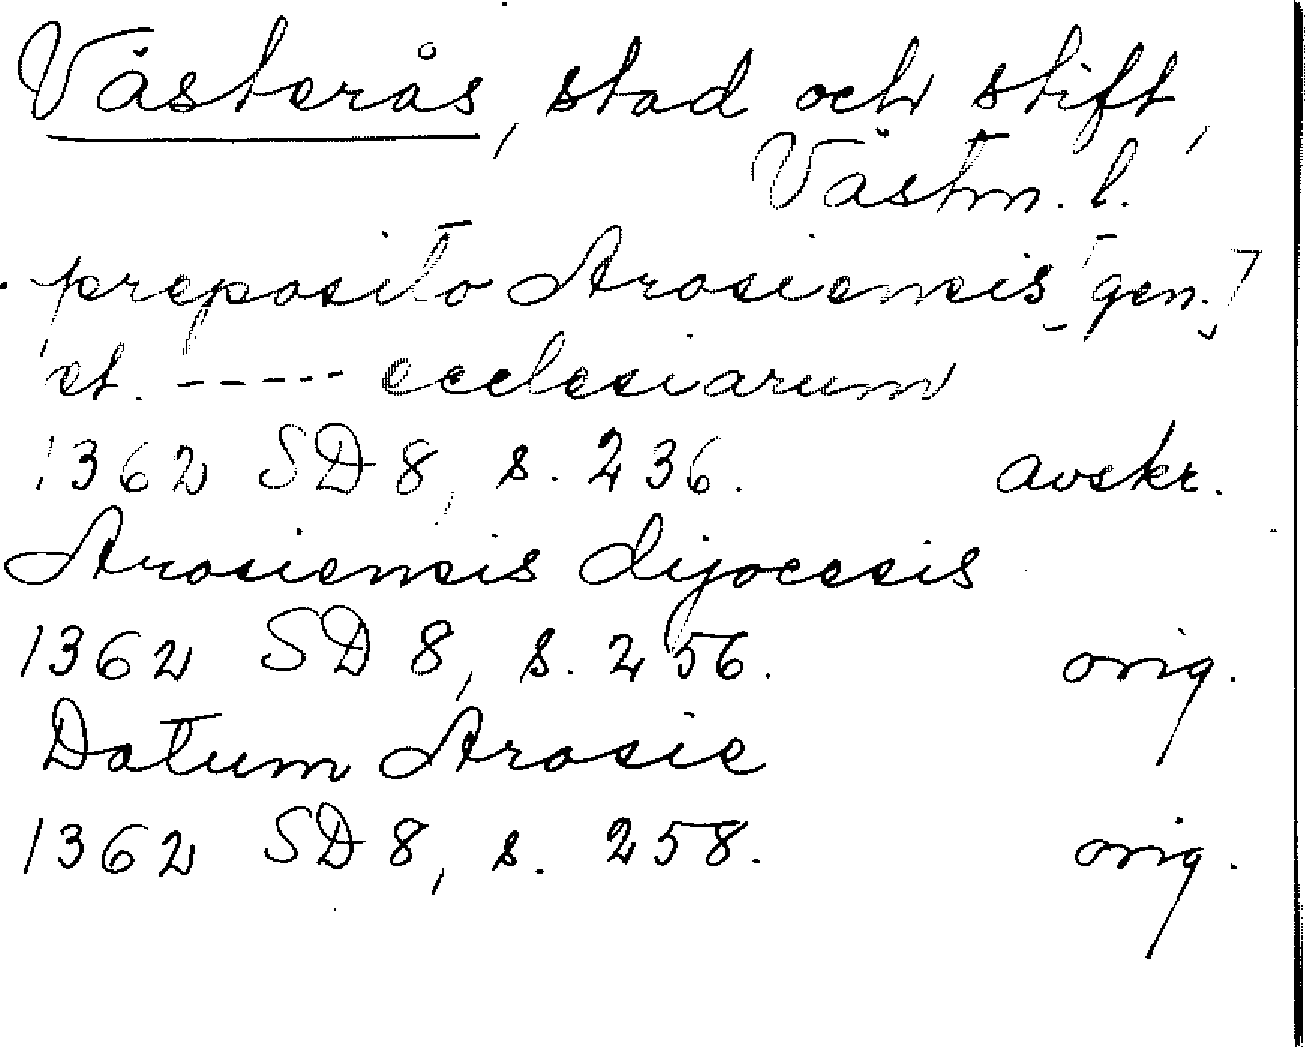 Västerås, stad och stift,
Västm. l.
preposito Arosiensis [gen.]
et. ----- ecclesiarum
1362 SD 8, s. 236. avskr.
Arosiensis dijocesis
1362 SD 8, s. 256. orig.
Datum Arosie
1362 SD 8, s. 258. orig.